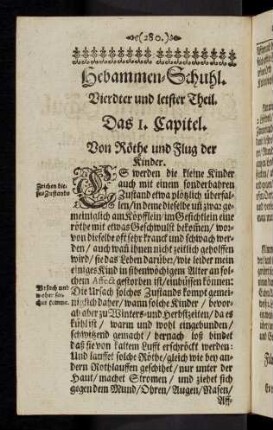 (280.)
Hebammen-Schuhl.
Vierdter und letster Theil.
Das 1. Capitel.
Von Röthe und Flug der
Kinder.
Zeichen die-
ses Zustands
ES werden die kleine Kinder
auch mit einem sonderbahren
Zustand etwa plötzlich überfal-
len/in deme dieselbe uß zwar ge-
meiniglich am Köpfflein im Gesichtlein eine
röthe mit etwas Geschwulst bekomen/wor-
von dieselbe offt sehr kranck und schwach wer-
den/auch wañ ihnen nicht zeitlich geholffen
wird/sie das Leben darüber/wie leider mein
einiges Kind in sibenwöchigem Alter an sol-
chen Affect gestorben ist/einbüssen können:
Weßwegen und
woher sol-
ches komme.
Die Ursach solches Zustands kompt gemei-
niglich daher/wann solche Kinder/bevor-
ab aber zu Winters-und Herbstzeiten/da es
kühl ist/warm und wohl eingebunden/
schwitzend gemacht/hernach loß bindet
daß sie von kaltem Lufft erschröckt werden:
Und lauffet solche Röthe/gleich wie bey an-
dern Rothlauffen geschihet/nur unter der
Haut/machet Stromen/und ziehet sich
gegen dem Mund/Ohren/Augen/Nasen/
Aff-